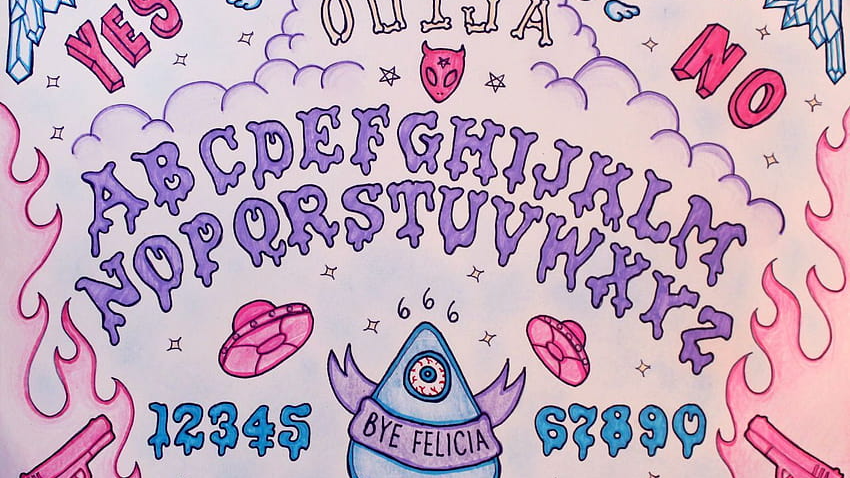 OUIJA
YES NO
ABCDEFGHIJKLM
NOPQRSTUVWXYZ
666
12345 67890
BYE FELICIA